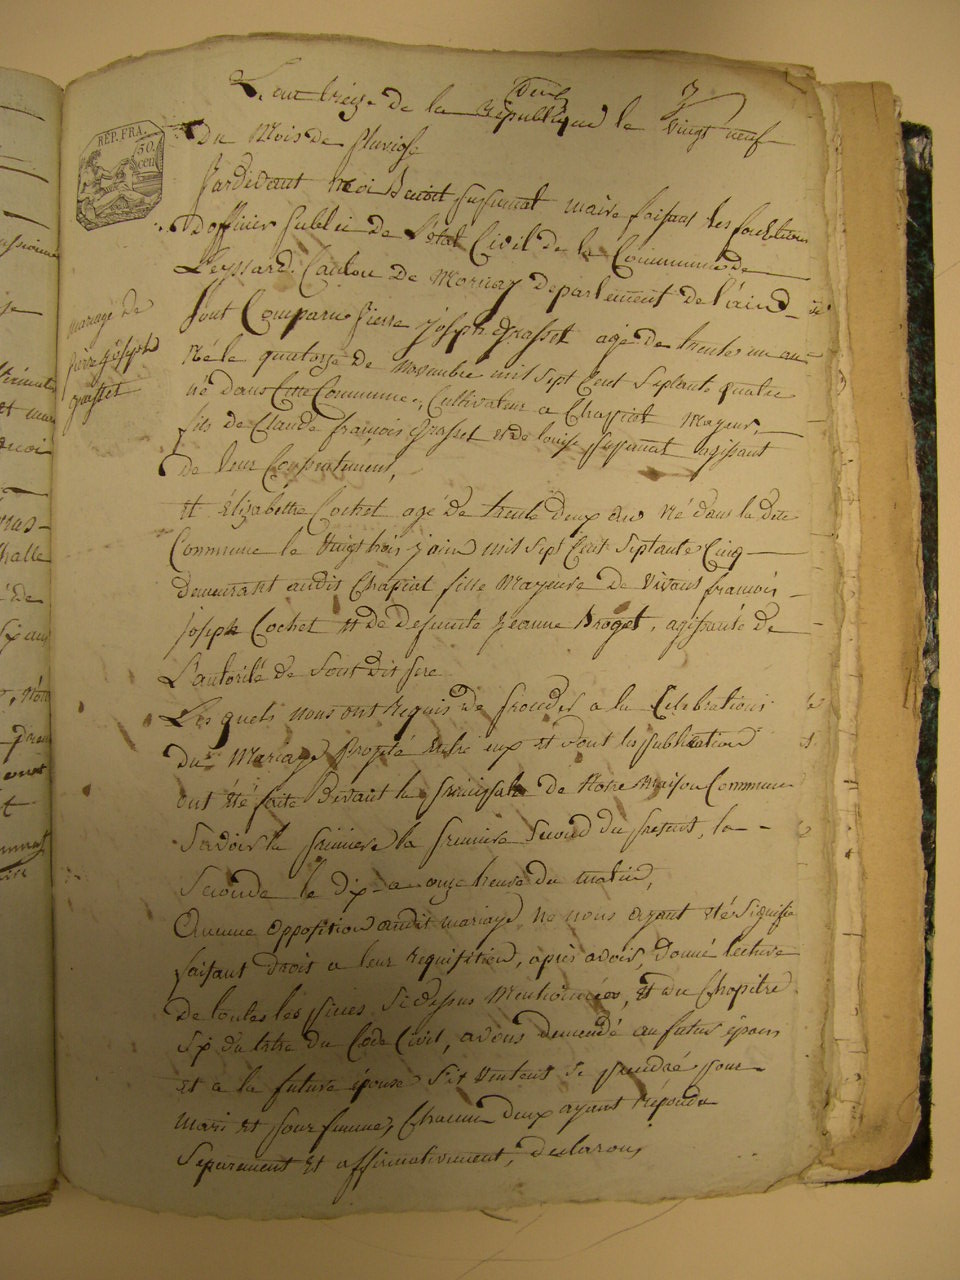 REP. FRA.
50.
cen
L'an treize de la Republique le vingt neuf
Du Mois de pluviose
Pardevant moi Benoit sufsinat maire faisant les fonctions
D'officier public de l'état Civil de la Commune de
Leyssard. Canton De Mornay departement de l'ain
mariage de
pierre joseph
grasset
sont Comparu Pierre joseph grasset agé de trente un an
Né le quatorze de Novembre mil sept Cent septante quatre
né dans Cette Commune, Cultivateur a Chapiat Mayeur,
fils de Claude françois grasset et de louise agissant
de leur Consentement,
Et Elizabethe Cochet agé De trente deux ans Né dans la dite
Commune le vingt trois juin mil sept Cent septante Cinq
demeurant audit Chapiat fille Mayeure De vivant francois
joseph Cochet et de defunte Jeanne Broget, agissante de
L'autorité de sont dit pere
Lesquels nous ont requis de proceder a la Celebrations
du Mariage Projeté entre eux et dont les publication
ont été faite Devant la principale de Notre Maison Commune
Savoir la premiere la premiere second du present, la
Seconde le dix a onze heure du matin,
Aucune opposition audit mariage ne nous ayant été signifié
faisant droit a leur requisition, apres avoir, donné lecture
de toutes les pieces Si dessus Mentionnées, et du Chapitre
Six du titre du Code Civil, avons demendé au futur époux
et a la future épouse S'il veulent se prendre pour
mari et pour femme, Chacun deux ayant répondu
Separement et affirmativement, declarons